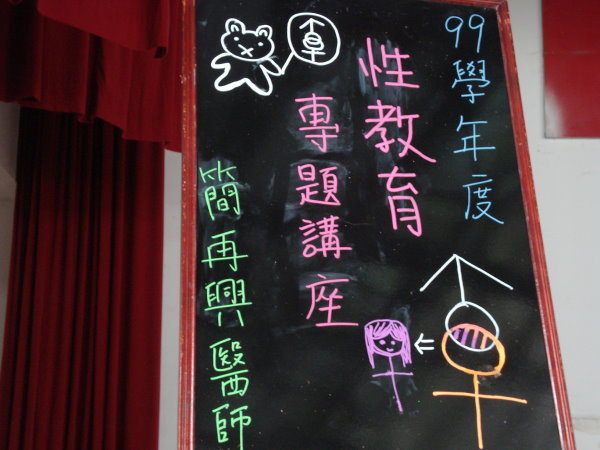 99學年度
性教育
專題講座
簡再興醫師